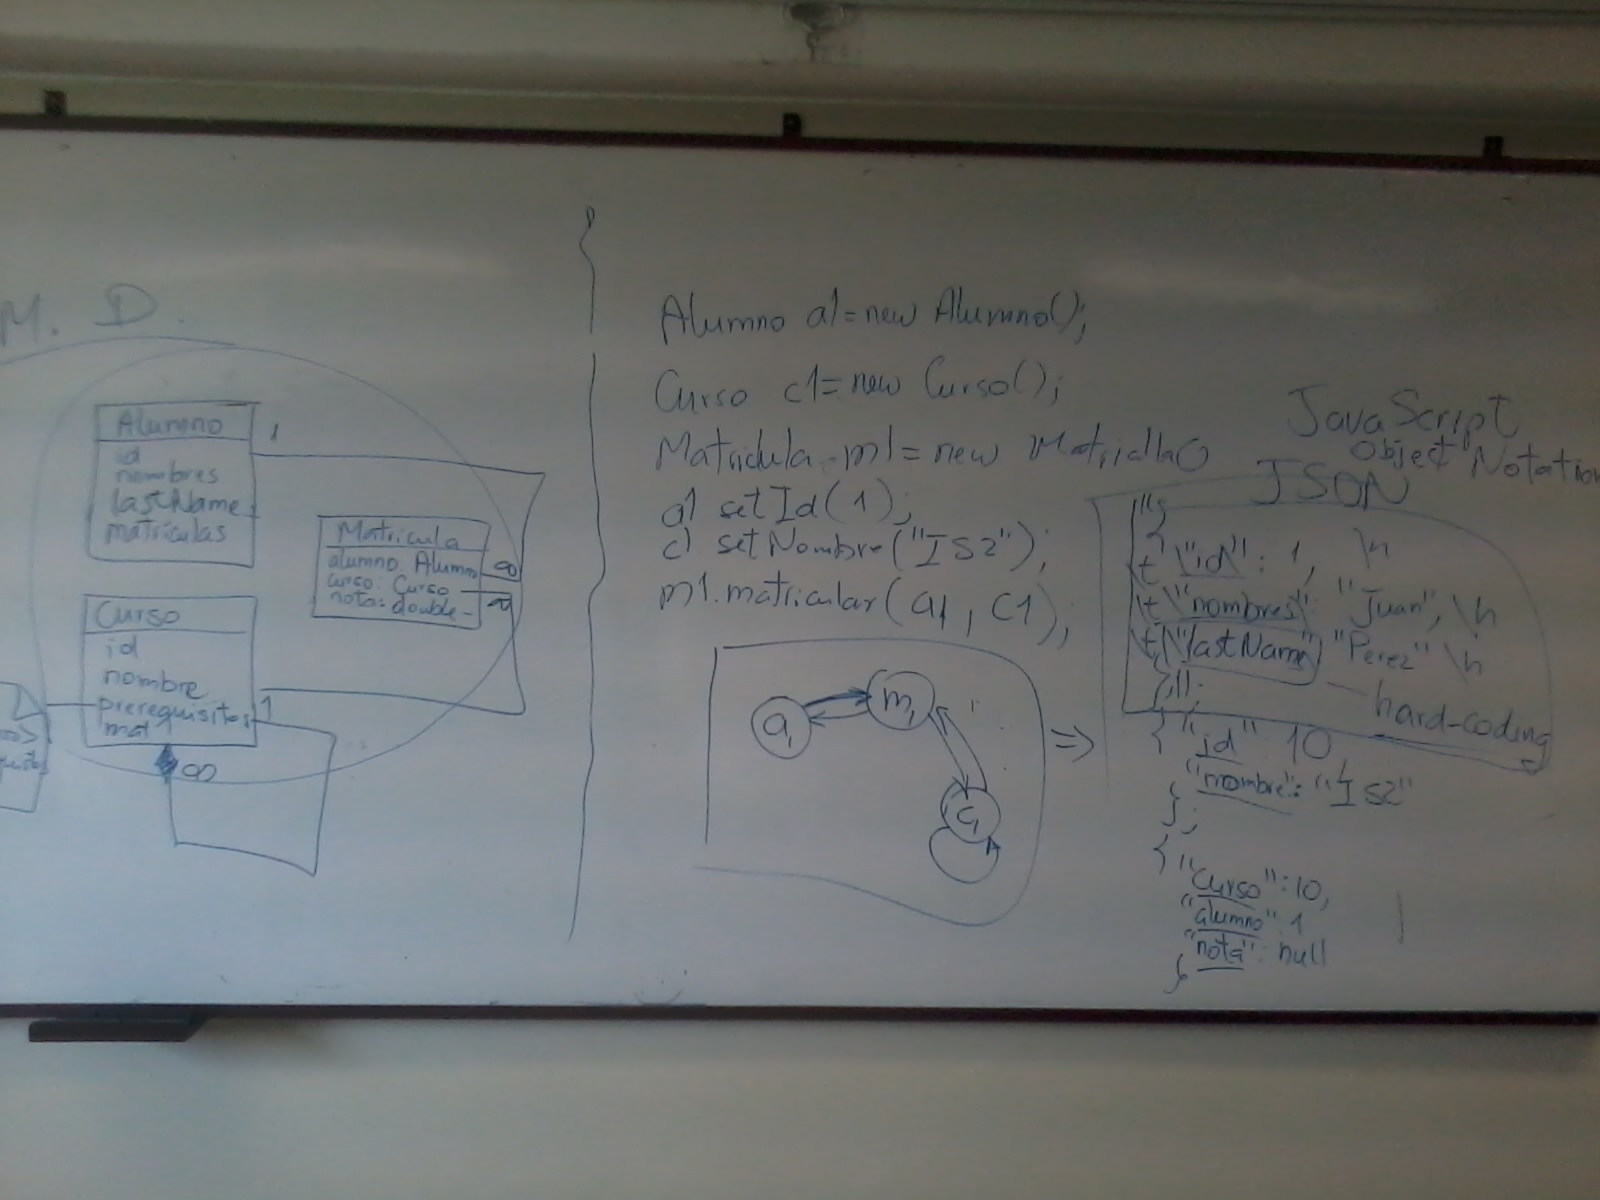 M. D.
Alumno
1
id
nombres
lastName
matriculas
Matricula
alumno: Alumn
∞
curso: Curso
∞
nota: double
Curso
id
nombre
prerequisitos
1
mat
∞
Alumno a1=new Alumno();
Curso c1=new Curso();
Matricula m1=new Matrialla()
a1 setId(1);
c) setNombre("IS2");
m1.matricular(a1, C1);
a1
m1
c1
⇒
JavaScript
Object Notation
JSON
"{
\t \"id\" : 1, \n
\t \"nombres\" "Juan", \n
\t \"lastName\" "Perez" \n
}";
hard-coding
{ "id" 10
"nombre": "IS2"
};
{ "curso":10,
"alumno" 1
"nota": null
}